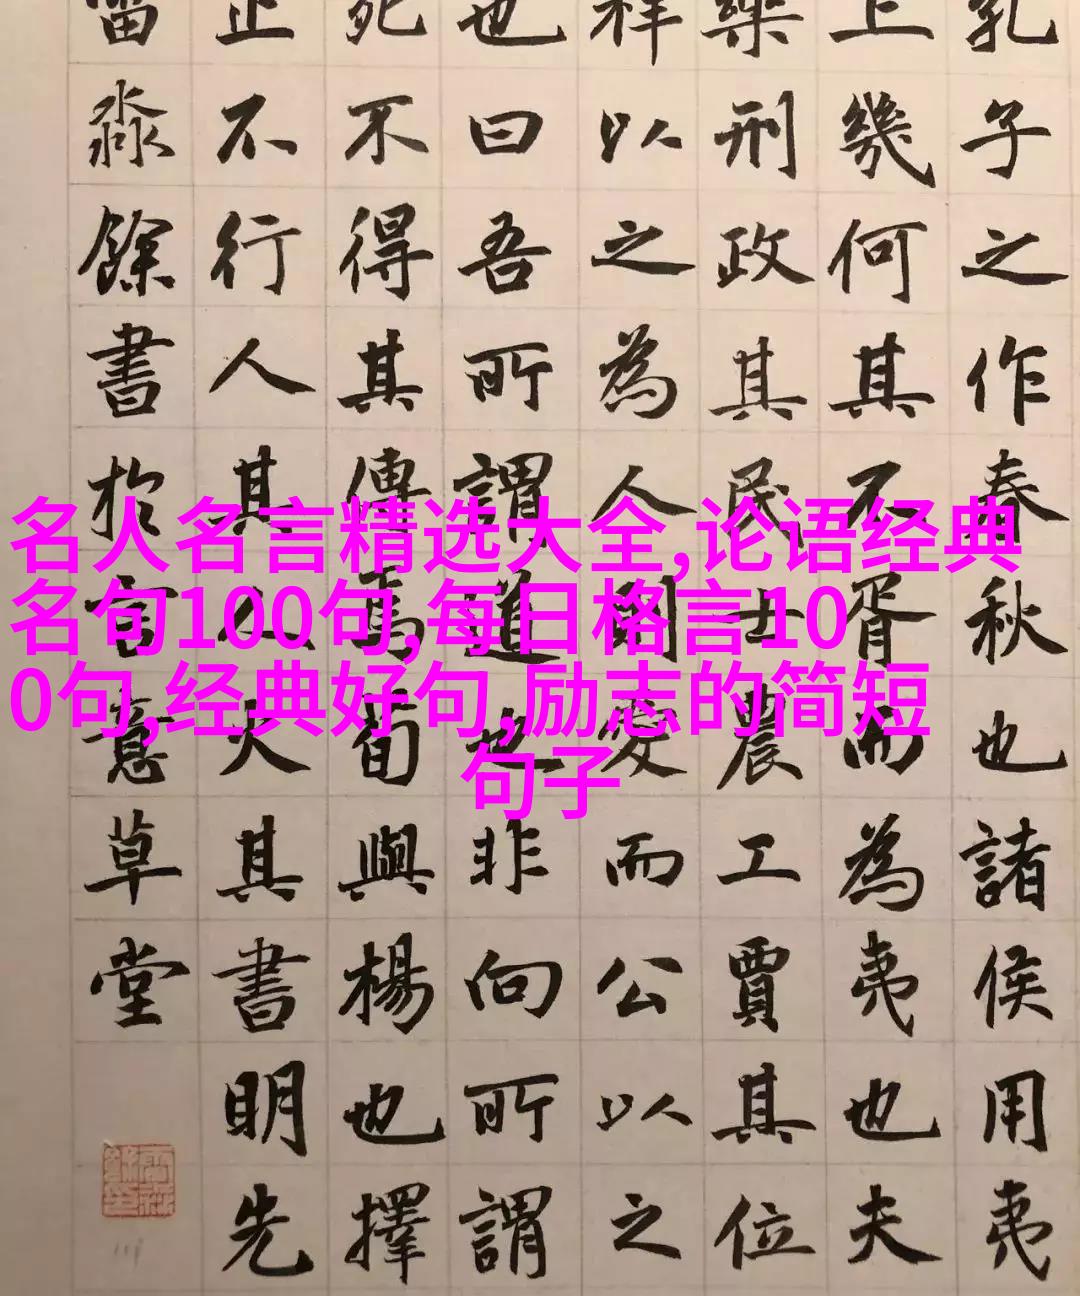 名人名言精选大全,论语经典
名句100句,每日格言10
0句,经典好句,励志的简短
句子
孔子之作春秋也諸侯用夷
上幾何其不胥而為夷也夫
樂刑政其民士農工賈其位
祥以之為人則愛而公以之
也曰吾所謂道也非向所謂
死不得其傳焉荀與楊也擇
止不行人其人火其書明先
淼餘書於言意草堂